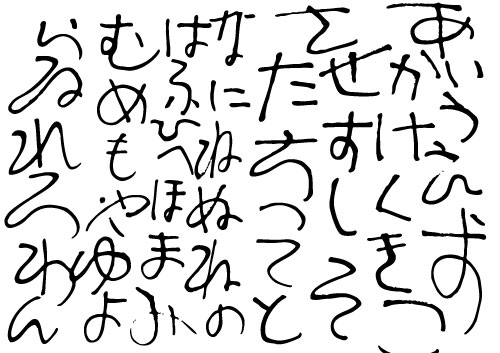 あいうえお
かけくきこ
させすしそ
たちつてと
なにねぬねの
はふひへほま
むめもやゆよ
らゐれろわん